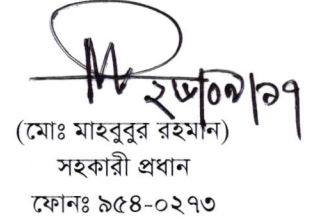 (মোঃ মাহবুবুর রহমান)
সহকারী প্রধান
ফোনঃ ৯৫৪-০২৭৩